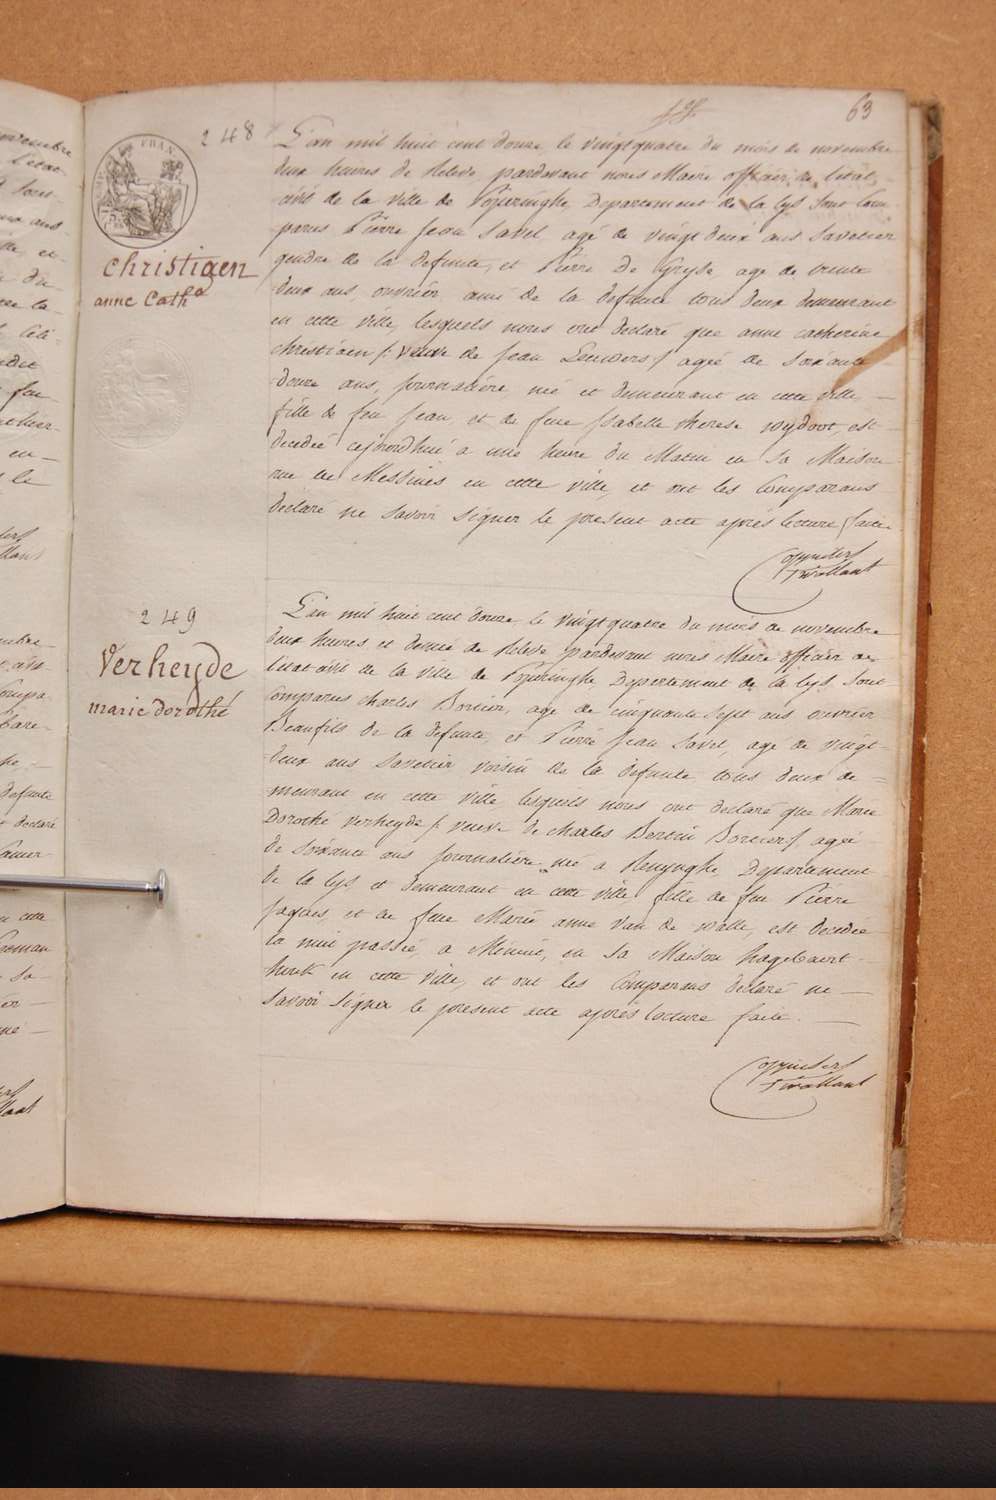 63
248
FRAN
L'an mil huit cent douze le vingtquatre du mois de novembre
deux heures de Relevé pardevant nous Maire officier de l'etat
civil de la ville de Poperinghe, Departement de la Lys sont Com-
parus Pierre Jean Savel agé de vingt deux ans savetier
gendre de la defunte, et Pierre De Gryse, agé de trente
deux ans, ouvrier, ami de la defunte tous deux demeurant
en cette ville, lesquels nous ont declaré que anne catherine
christiaen /: veuve de Jean Leuwers / ageé de soixante
douze ans, journaliére, neé et demeurant en cette ville,
fille de feu Jean, et de feue Isabelle therese wydoot, est
decedeé cejourdhui a une heure du Matin en sa Maison
rue de Messines en cette ville, et ont les Comparans
declaré ne savoir signer le present acte aprés lecture faite
christiaen
anne Catha
249
Verheyde
marie dorothé
L'an mil huit cent douze le vingtquatre du mois de novembre
deux heures et demie de Relevé pardevant nous Maire officier de
l'etat civil de la ville de Poperinghe Departement de la Lys sont
Comparus charles Bortier, agé de cinquante sept ans ouvrier
Beaufils de la defunte, et Pierre Jean Savel, agé de vingt
deux ans savetier voisin de la defunte tous deux de-
meurant en cette ville lesquels nous ont declaré que Marie
Dorothé verheyde /: veuve de charles Bortier / ageé
de soixante ans journaliére neé a Reninghe Departement
de la Lys et demeurant en cette ville fille de feu Pierre
Jaques, et de feue Marie anne Van de walle, est decedeé
la nuit passeé, a Minuit, en sa Maison hagebaert
hoek en cette ville, et ont les Comparans declaré ne
savoir signer le present acte aprés lecture faite.